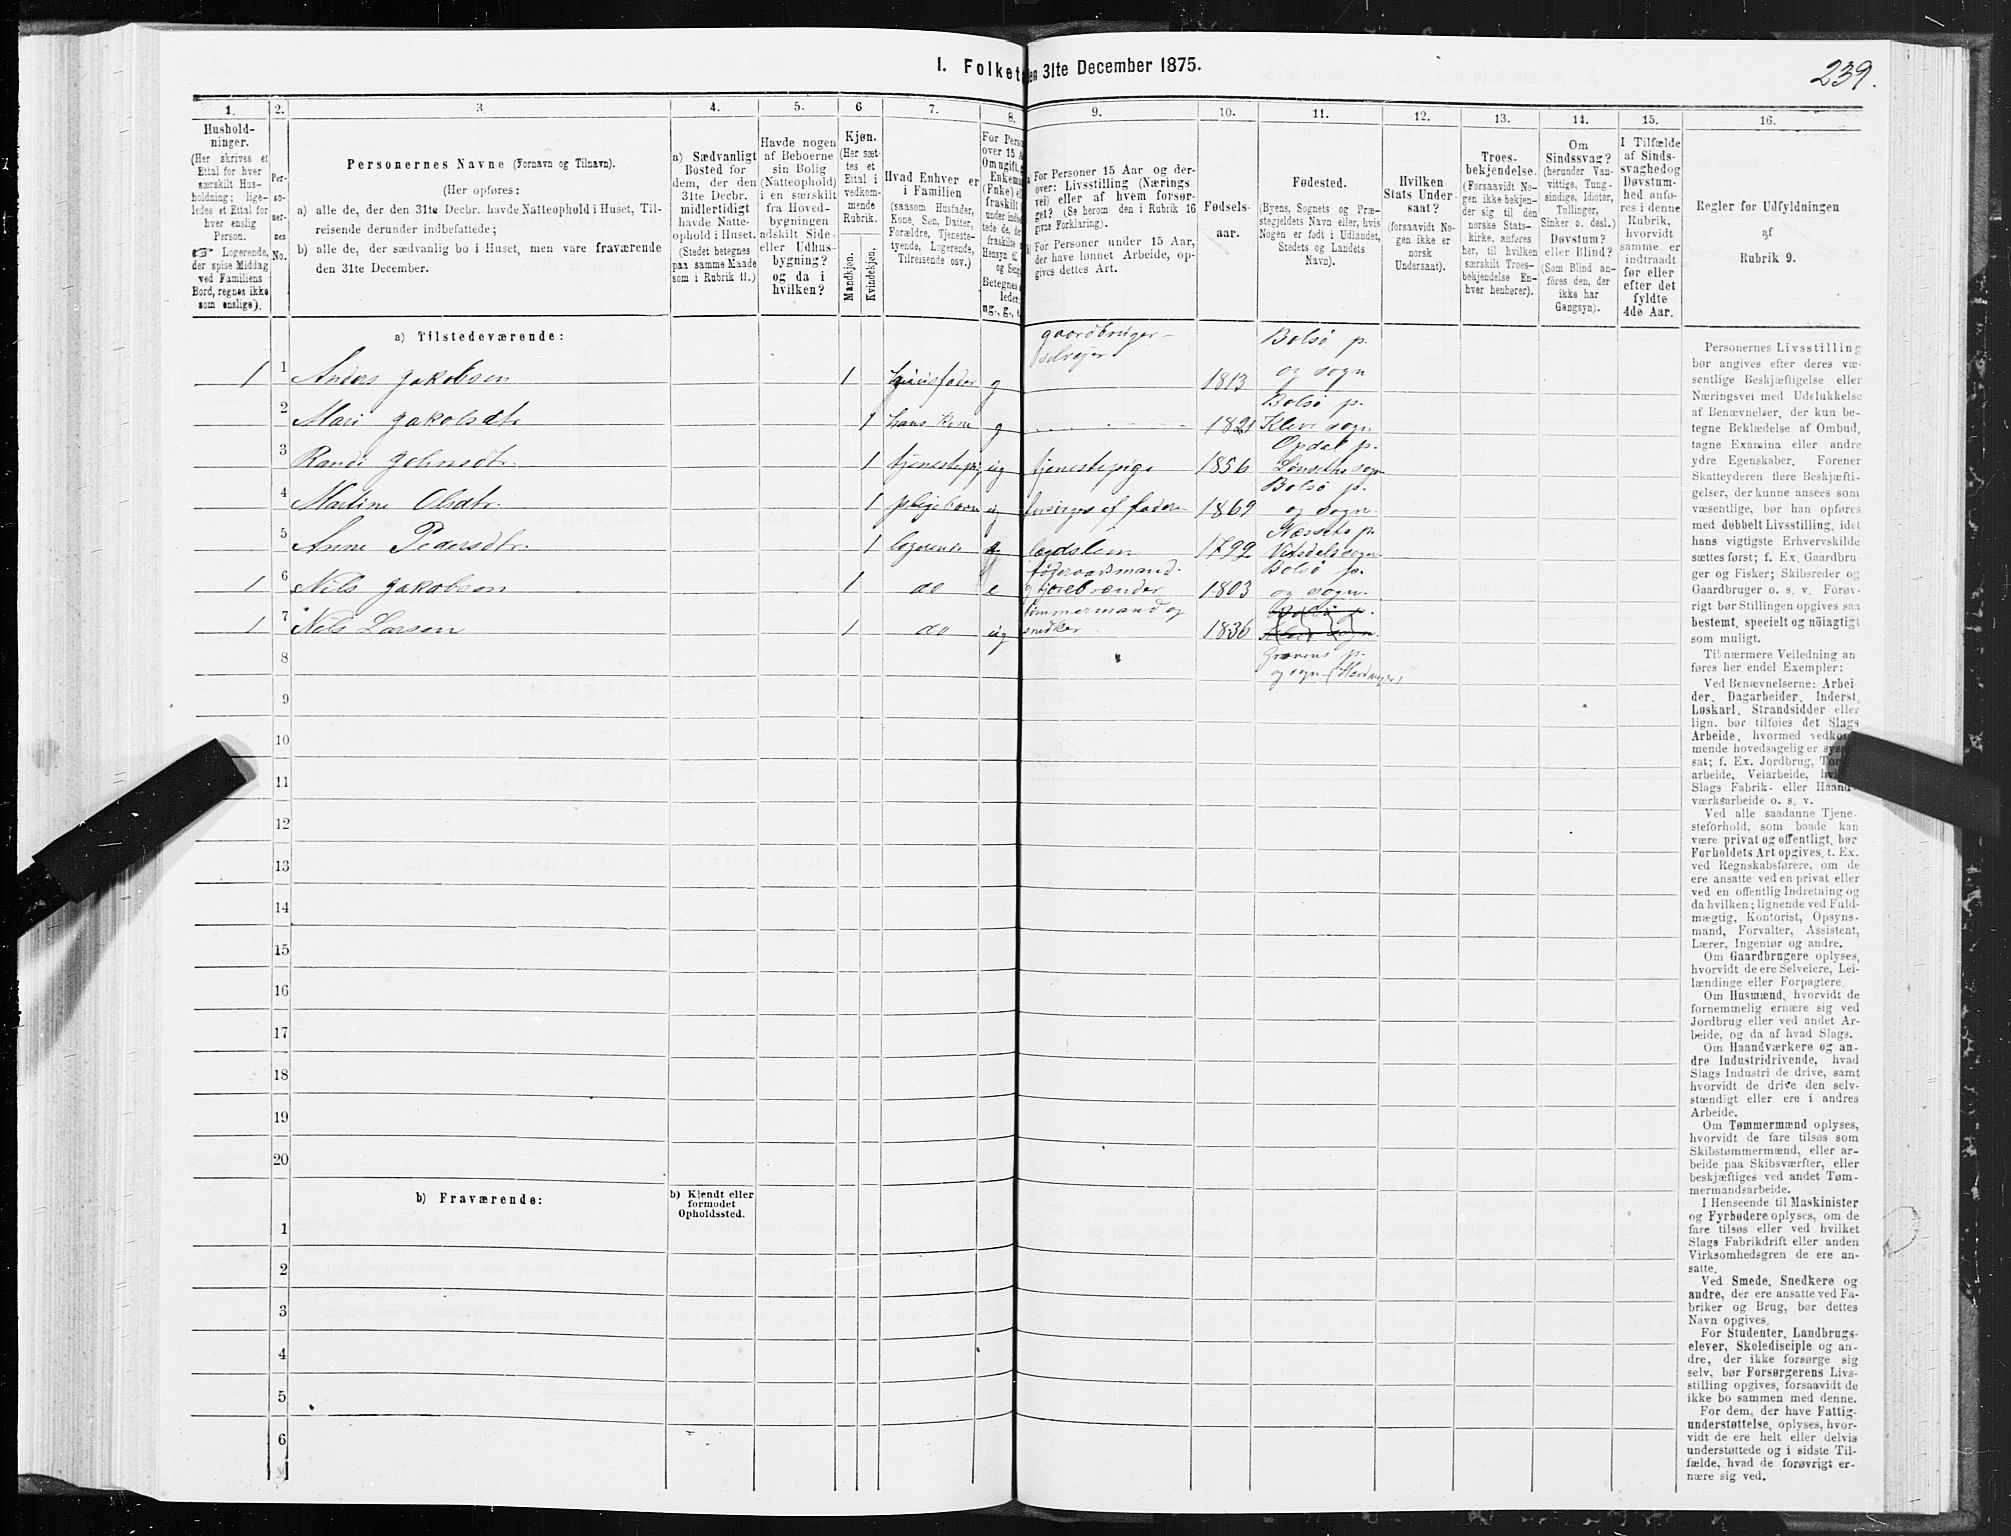 I. Folket
en 31te December 1875.
239.
1.
2.
3
4.
5.
6
7.
8.
9.
10.
11.
12.
13.
14.
15.
16.
Hushold-
ninger.
(Her skrives et
Ettal for hver
særskilt Hus-
holdning; lige-
ledes et Ettal for
hver enslig
Person.
☞ Logerende,
der spise Middag
ved Familiens
Bord, regnes ikke
som enslige).
Per-
so-
ner-
nes
No.
Personernes Navne (Fornavn og Tilnavn).
(Her opføres:
a) alle de, der den 31te Decbr. havde Natteophold i Huset, Til-
reisende derunder indbefattede;
b) alle de, der sædvanlig bo i Huset, men vare fraværende
den 31te December.
a) Sædvanligt
Bosted for
dem, der den
31te Decbr.
midlertidigt
havde Natte-
ophold i Huset.
(Stedet betegnes
paa samme Maade
som i Rubrik 11.)
Havde nogen
af Beboerne
sin Bolig
(Natteophold)
i en særskilt
fra Hoved-
bygningen
adskilt Side-
eller Udhus-
bygning?
og da i
hvilken?
Kjøn.
(Her sæt-
tes et
Ettal i
vedkom-
mende
Rubrik.
Mandkjøn.
Kvindekjøn.
Hvad Enhver er
i Familien
(saasom Husfader,
Kone, Søn, Datter,
Forældre, Tjeneste-
tyende, Logerende,
Tilreisende osv.)
For Pers
over 15 A
Om ugift,
Enkema
(Enke) e
fraskilt
under indse
tede de, d
fraskilte
Hensyn til
og Sen
Betegnes
lede
ug., g., e
For Personer 15 Aar og der-
over: Livsstilling (Nærings
vei) eller af hvem forsør-
get? (Se herom den i Rubrik 16
givne Forklaring).
For Personer under 15 Aar,
der have lønnet Arbeide, op-
gives dettes Art.
Fødsels-
aar.
Fødested.
(Byens, Sognets og Præ-
stegjeldets Navn eller, hvis
Nogen er født i Udlandet,
Stedets og Landets
Navn).
Hvilken
Stats Under-
saat?
(forsaavidt No-
gen ikke er
norsk
Undersaat).
Troes-
bekjendelse.
(Forsaavidt No-
gen ikke bekjen-
der sig til den
norske Stats-
kirke, anføres
her, til hvilken
særskilt Troes-
bekjendelse En-
hver henhører).
Om
Sindssvag?
(herunder Van-
vittige, Tung-
sindige, Idioter,
Tullinger,
Sinker o. desl.)
Døvstum?
eller Blind?
(Som Blind an-
føres den, der
ikke har
Gangsyn).
I Tilfælde
af Sinds-
svaghed og
Døvstum-
hed anfø-
res i denne
Rubrik.
hvorvidt
samme er
indtraadt
før eller
efter det
fyldte
4de Aar.
Regler før Udfyldningen
af
Rubrik 9.
a) Tilstedeværende:
1 1 Anders Jakobsen 1 huusfader g gaardbruger selvejer 1813 Bolsø p. og sogn
2 Mari Jakobsdtr 1 hans kone g 1821 Bolsø p. Kleve sogn
3 Randi Johnsdtr. 1 tjenestepig ug tjenestepige 1856 Opdal p. Lønsethe sogn
4 Martine Olsdtr. 1 plejebarn ug forsørges af fader 1869 Bolsø p. og sogn.
5 Anne Pedersdtr. 1 logerende lægdslem 1799 Næssets p. Vitsdals sogn
1 6 Nils Jakobsen 1 do e føderaadsmand. og tjærebrænder 1803 Bolsø p. og sogn.
1 7 Nils Larsen 1 do ug tømmermand og snedker 1836 Bolsø p. Kleve sogn.
Gravens p.
og sogn (Hardanger)
8
9
10
11
12
13
14
15
16
17
18
19
20
b) Fraværende:
b) Kjendt eller
formodet
Opholdssted.
1
2
3
4
5
6
Personernes Livsstilling
bør angives efter deres væ-
sentlige Beskjæftigelse eller
Næringsvei med Udelukkelse
af Benævnelser, der kun be-
tegne Beklædelse af Ombud,
tagne Examina eller andre
ydre Egenskaber. Forener
Skatteyderen flere Beskjæfti-
gelser, der kunne ansees som
væsentlige, bør han opføres
med dobbelt Livsstilling, idet
hans vigtigste Erhvervskilde
sættes først; f. Ex. Gaardbru-
ger og Fisker; Skibsreder og
Gaardbruger o. s. v. Forøv-
rigt bør Stillingen opgives saa
bestemt, specielt og nöiagtigt
som muligt.
Til nærmere Veiledning an-
føres her endel Exempler:
Ved Benævnelserne: Arbei-
der, Dagarbeider, Inderst,
Løskarl, Strandsidder eller
lign. bør tilføies det Slags
Arbeide, hvormed vedkom-
mende hovedsagelig er syssel-
sat; f. Ex. Jordbrug, Tom
arbeide, Veiarbeide, hvil
Slags Fabrik- eller Haand-
værksarbeide o. s. v.
Ved alle saadanne Tjene-
steforhold, som baade kan
være privat og offentligt, bør
Forholdets Art opgives, t. Ex.
ved Regnskabsførere, om de
ere ansatte ved en privat eller
ved en offentlig Indretning og
da hvilken; lignende ved Fuld-
mægtig, Kontorist, Opsyns-
mand, Forvalter, Assistent,
Lærer, Ingeniør og andre.
Om Gaardbrugere oplyses,
hvorvidt de ere Selveiere, Lei-
lændinge eller Forpagtere.
Om Husmænd, hvorvidt de
fornemmelig ernære sig ved
Jordbrug eller ved andet Ar-
beide, og da af hvad Slags.
Om Haandværkere og an-
dre Industridrivende, hvad
Slags Industri de drive, samt
hvorvidt de drive den selv-
stændigt eller ere i andres
Arbeide.
Om Tømmermænd oplyses,
hvorvidt de fare tilsøs som
Skibstømmermænd, eller ar-
beide paa Skibsværfter, eller
beskjæftiges ved andet Tøm-
mermandsarbeide.
I Henseende til Maskinister
og Fyrbødere oplyses, om de
fare tilsøs eller ved hvilket
Slags Fabrikdrift eller anden
Virksomhedsgren de ere an-
satte.
Ved Smede, Snedkere og
andre, der ere ansatte ved Fa-
briker og Brug, bør dettes
Navn opgives.
For Studenter, Landbrugs-
elever, Skoledisciple og an-
dre, der ikke forsørge sig
selv, bør Forsørgerens Livs-
stilling opgives, forsaavidt de
ikke bo sammen med denne.
For dem, der have Fattig-
understøttelse, oplyses, hvor-
vidt de ere helt eller delvis
understøttede og i sidste Til-
fælde, hvad de forøvrigt er-
nære sig ved.